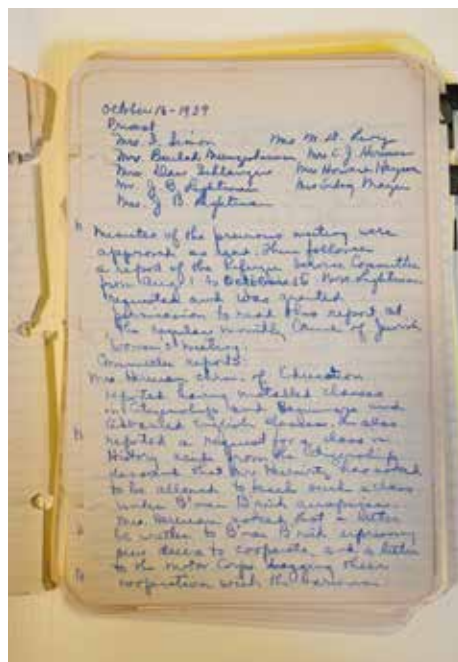 October 16 - 1939
Present
Mrs. S. Simon Mrs M. A. Levy
Mrs. Beulah Mrs C. J. Herman
Mrs. Dave Schlanger Mrs Howard
Mr. J B Lightman Mrs Mayer
Mrs. J B Lightman
Minutes of the previous meeting were
approved as read. Then followed
a report of the Refugee Service Committee
from Aug 1 to October 16. Mrs. Lightman
requested and was granted
permission to read this report at
the regular monthly Council of Jewish
Women's meeting.
Committee reports:
Mrs. Herman chrm. of Education
reported having installed classes
in Citizenship and Beginners and
Advanced English classes. also
reported a request for a class in
History from the Citizenship
that Mr has asked
to be allowed to teach such a class
under B'nai B'rith
Mrs. Herman that a letter
be written to B'nai B'rith expressing
desire to cooperate and a letter
to the Motor Corps their
cooperation with the